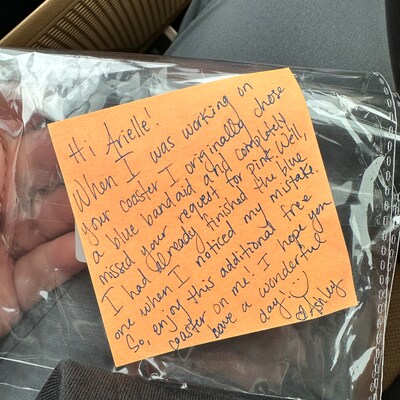 Hi Arielle!
When I was working on
your coaster I originally chose
a blue bandaid and completely
missed your request for pink. Well,
I had already finished the blue
one when I noticed my mistake.
So, enjoy this additional free
coaster on me! I hope you
have a wonderful
day! :)
Ashley